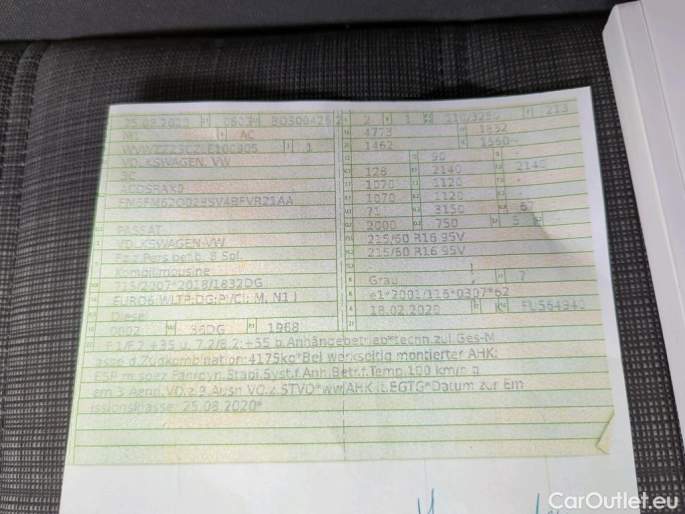 25.08.2020 0603 BQS00425 2
M1 AC
VOLKSWAGEN, VW
3C
ACDSRAX0
PASSAT
VOLKSWAGEN-VW
Fz.z.Pers.bef.b. 8 Spl.
Kombilimousine
715/2007*2018/1832DG
EURO6;WLTP;DG;PI/CI; M, N1 I
Diesel
0002 36DG 1968
2 1 110/3250 213
4773 1832
1462 1560-
90 -
128 2140 2140
1070 1120 -
1070 1120 -
71 3150 67
2000 750 5
215/60 R16 95V
215/60 R16 95V
Grau 7
e1*2001/116*0307*62
18.02.2020 K
F.1/F.2:+35 u. 7.2/8.2:+55 b.Anhängebetrieb*techn.zul.Ges-M
asse d.Zugkombination:4175kg*Bei werkseitig montierter AHK:
ESP m.spez.Fahrdyn.Stabi.Syst.f.Anh.Betr.f.Temp.100 km/h g
em.3.Aend.VO.z.9.Ausn.VO.z.STVO*ww.AHK lt.EGTG*Datum zur Em
issionsklasse: 25.08.2020*
CarOutlet.eu